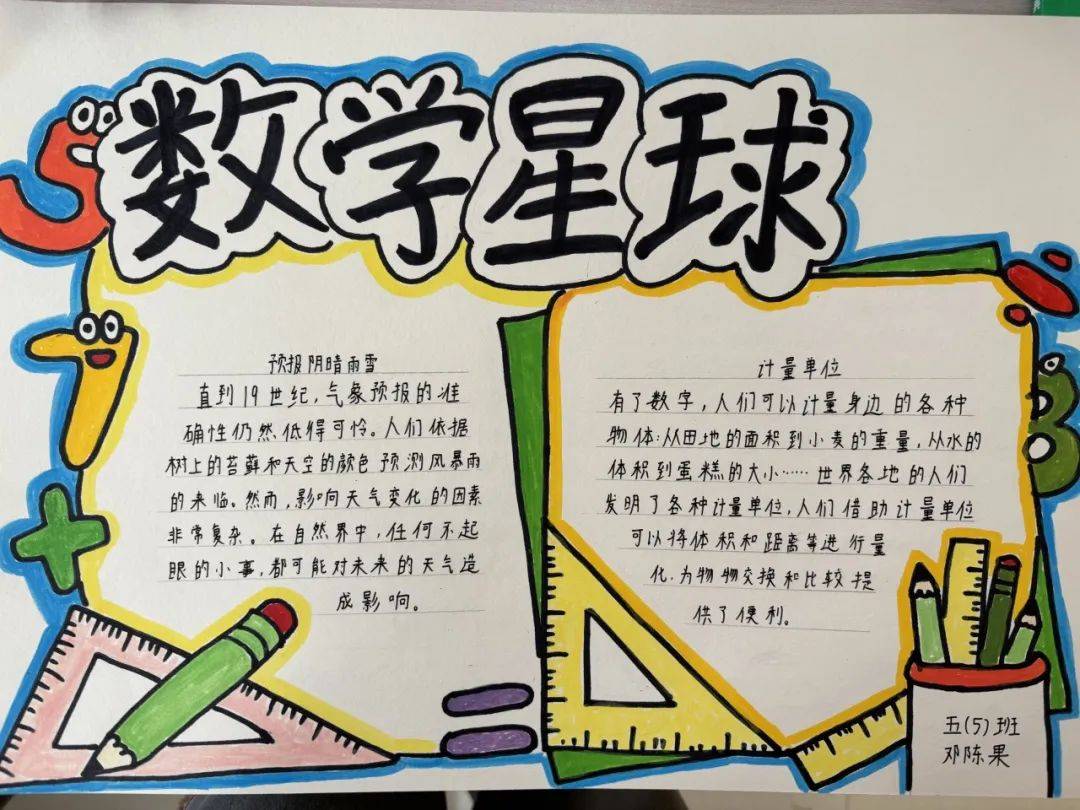 数学星球
预报阴晴雨雪
直到19世纪,气象预报的准
确性仍然低得可怜。人们依据
树上的苔藓和天空的颜色预测风暴雨
的来临。然而,影响天气变化的因素
非常复杂。在自然界中,任何不起
眼的小事,都可能对未来的天气造
成影响。
计量单位
有了数字,人们可以计量身边的各种
物体:从田地的面积到小麦的重量,从水的
体积到蛋糕的大小……世界各地的人们
发明了各种计量单位,人们借助计量单位
可以将体积和距离等进行量
化,为物物交换和比较提
供了便利。
五(5)班
邓陈果